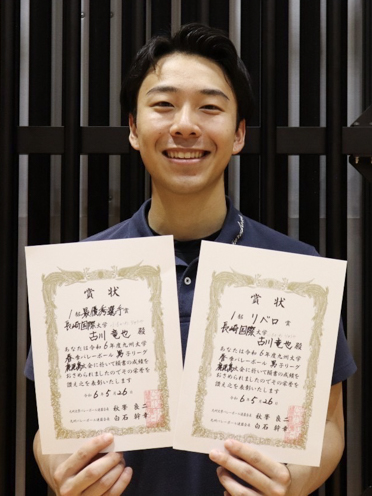 賞状
1部最優秀選手賞
長崎国際大学
古川 竜也 殿
あなたは令和6年度九州大学
春季バレーボール男子リーグ
大会に於いて頭書の成績を
おさめられましたのでその栄誉を
讃え之を表彰いたします
令和 6年5月26日
秋峯 良二
白石 幹幸
賞状
1部 リベロ 賞
長崎国際大学
古川 竜也 殿
あなたは令和6年度九州大学
春季バレーボール男子リーグ
大会に於いて頭書の成績を
おさめられましたのでその栄誉を
讃え之を表彰いたします
令和 6年5月26日
秋峯 良二
白石 幹幸